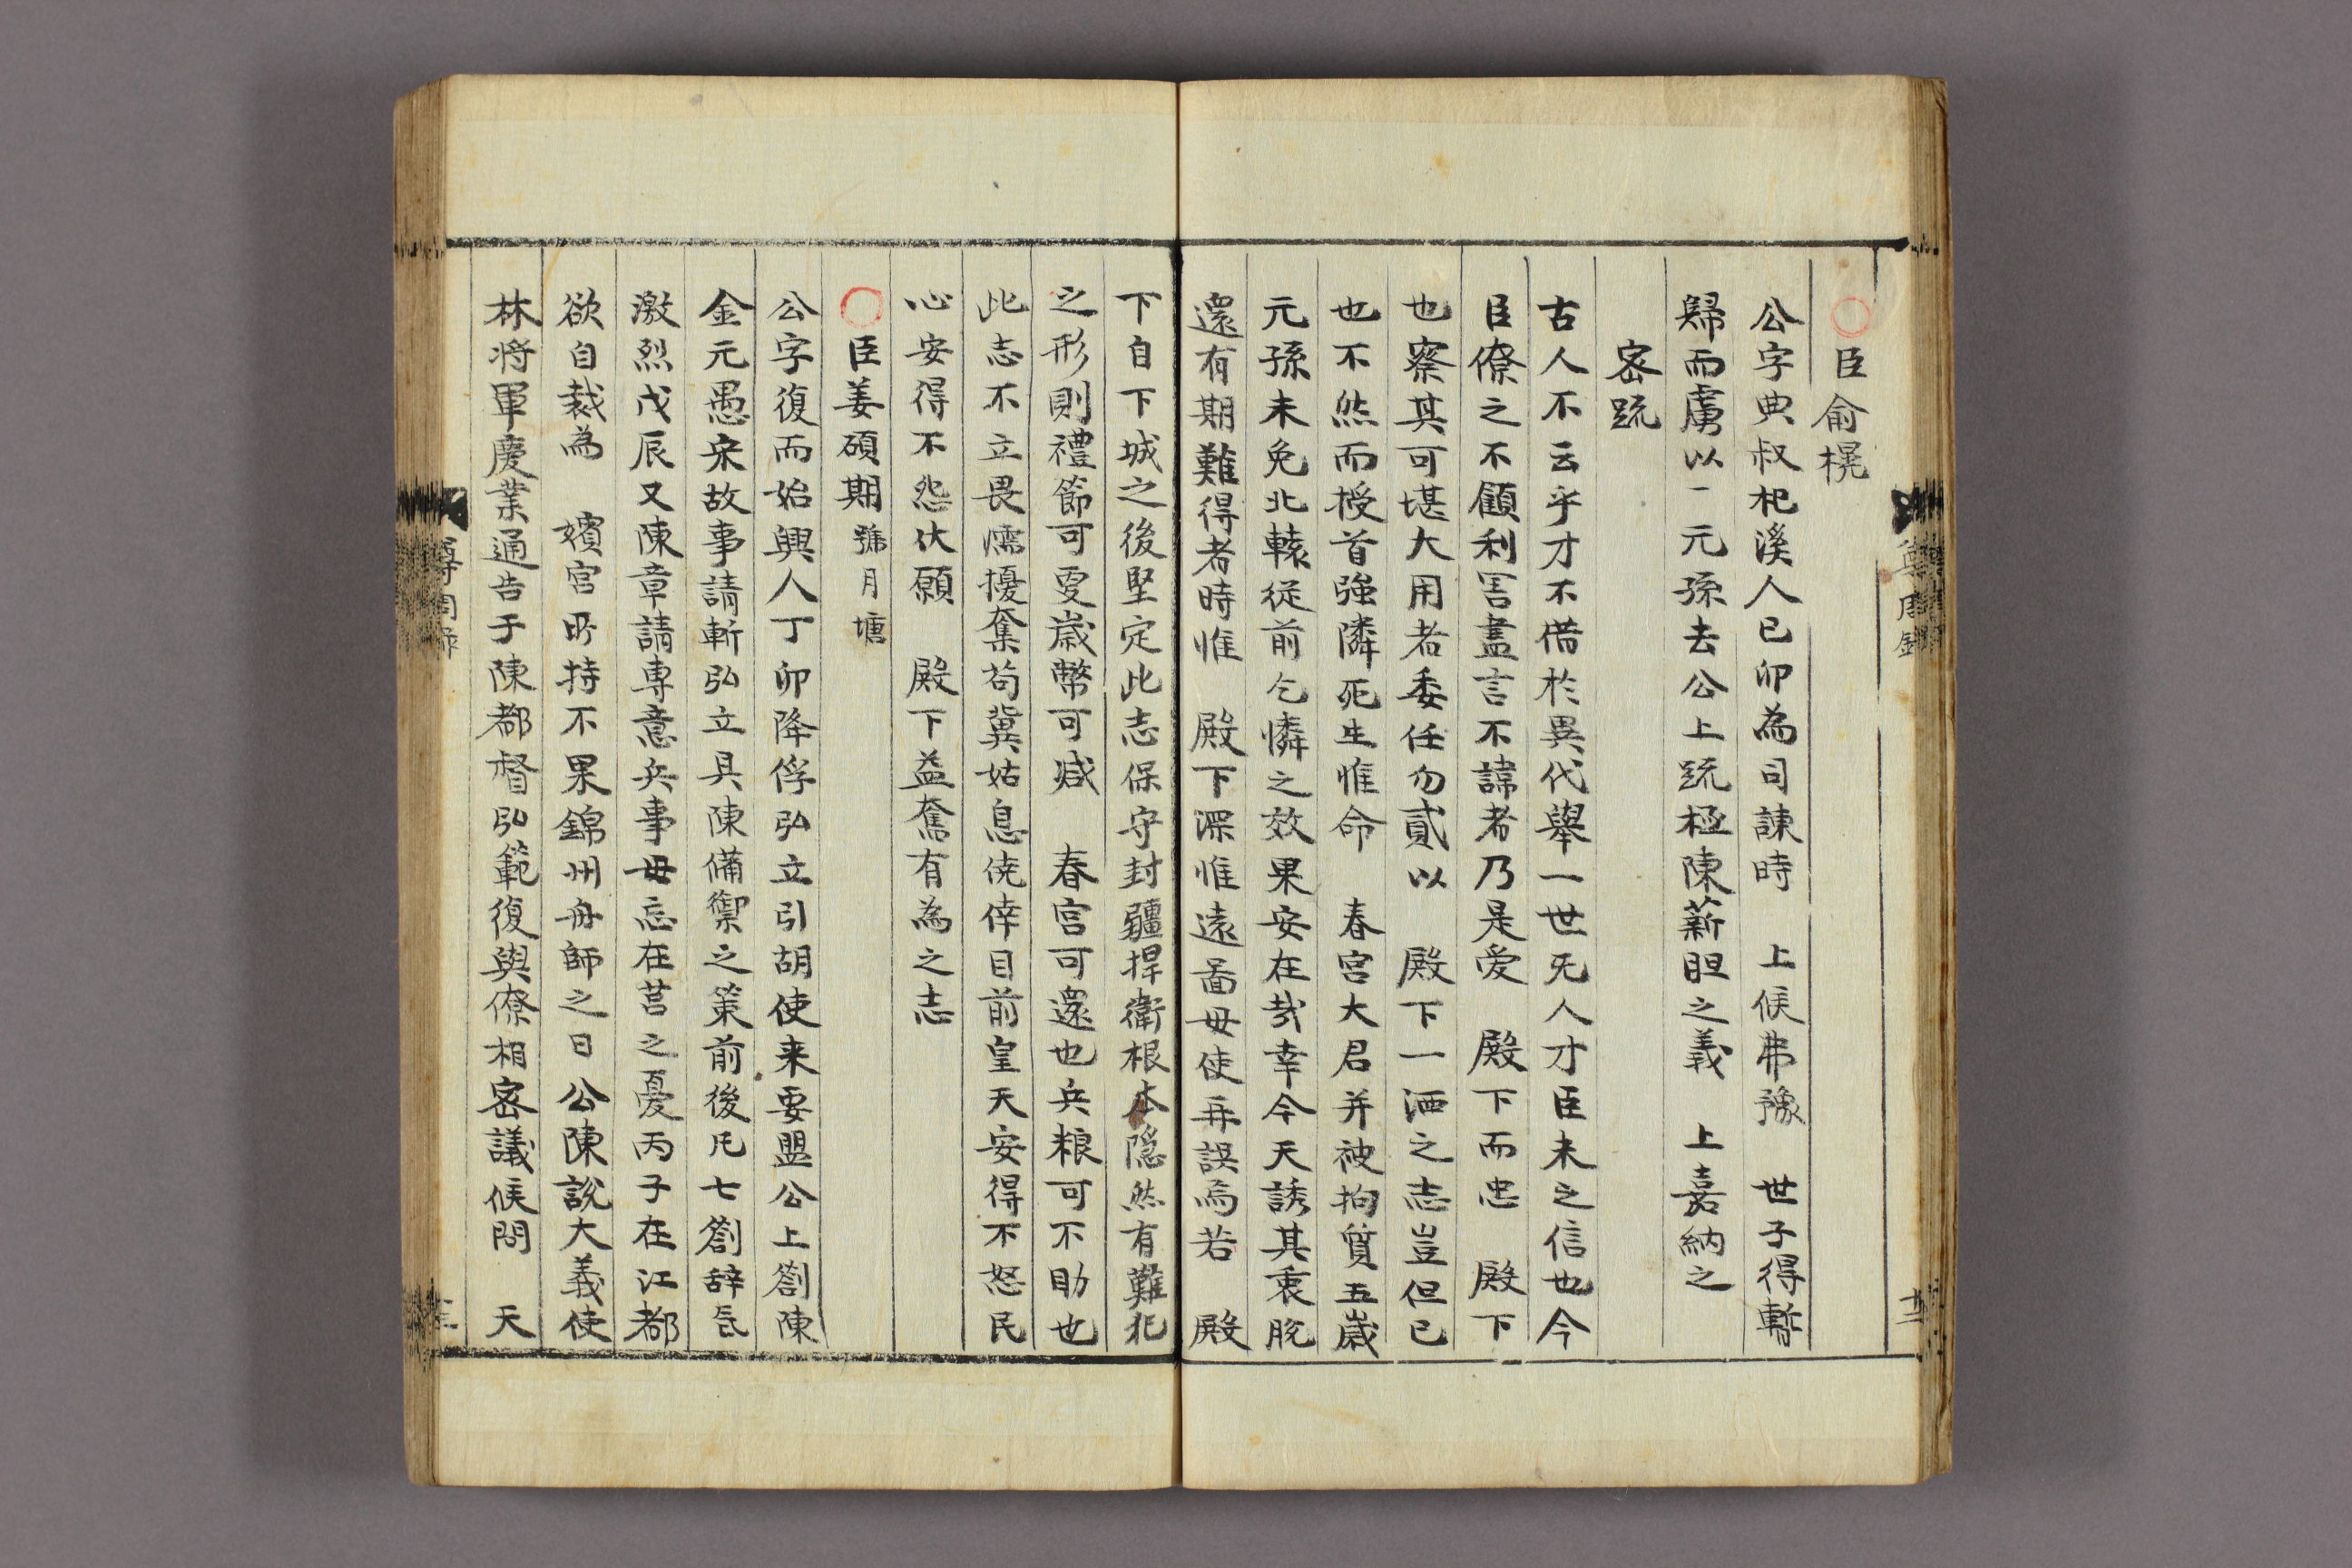 ○臣俞榥
公字典叔杞溪人己卯為司諫時 上候弗豫 世子得暫
歸而虜以一元孫去公上疏極陳薪胆之義 上嘉納之
密疏
古人不云乎才不借於異代舉一世旡人才臣未之信也今
臣僚之不顧利害盡言不諱者乃是爱 殿下而忠 殿下
也察其可堪大用者委任勿貳以 殿下一洒之志豈但已
也不然而授首強隣死生惟命 春宮大君并被拘質五歲
元孫未免北轅從前乞憐之效果安在㢤幸今天誘其衷脫
還有期難得者時惟 殿下深惟遠啚毋使再誤焉若 殿
下自下城之後堅定此志保守封疆捍衛根本隠然有難犯
之形則禮節可变歲幣可减 春宮可還也兵粮可不助也
此志不立畏懦擾奪苟冀姑息僥倖目前皇天安得不怒民
心安得不怨伏願 殿下益奮有為之志
○臣姜碩期號月塘
公字復而始興人丁卯降俘弘立引胡使来要盟公上劄陳
金元愚宋故事請斬弘立具陳備禦之策前後凡七劄辞气
激烈戊辰又陳章請專意兵事毋忘在莒之憂丙子在江都
欲自裁為 嬪宮所持不果錦州舟師之日公陳說大義使
林将軍慶業通告于陳都督弘範復與僚相密議候問 天
尊周錄